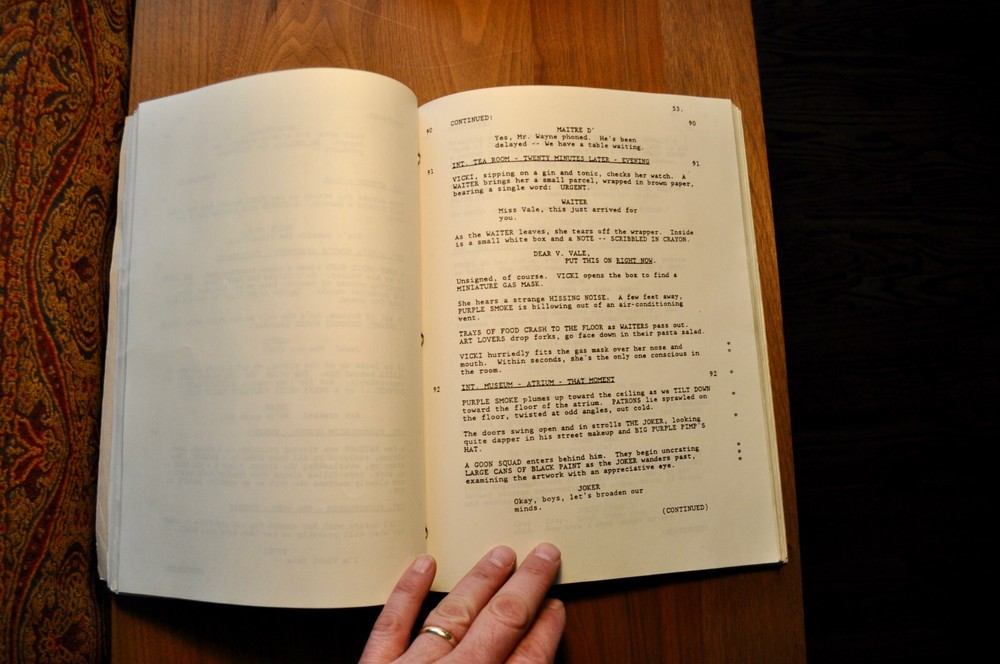 53.
90 CONTINUED: 90
MAITRE D'
Yes, Mr. Wayne phoned. He's been
delayed -- We have a table waiting.
91 INT. TEA ROOM - TWENTY MINUTES LATER - EVENING 91
VICKI, sipping on a gin and tonic, checks her watch. A
WAITER brings her a small parcel, wrapped in brown paper,
bearing a single word: URGENT.
WAITER
Miss Vale, this just arrived for
you.
As the WAITER leaves, she tears off the wrapper. Inside
is a small white box and a NOTE -- SCRIBBLED IN CRAYON.
DEAR V. VALE,
PUT THIS ON RIGHT NOW.
Unsigned, of course. VICKI opens the box to find a
MINIATURE GAS MASK.
She hears a strange HISSING NOISE. A few feet away,
PURPLE SMOKE is billowing out of an air-conditioning
vent.
TRAYS OF FOOD CRASH TO THE FLOOR as WAITERS pass out.
ART LOVERS drop forks, go face down in their pasta salad.
VICKI hurriedly fits the gas mask over her nose and *
mouth. Within seconds, she's the only one conscious in *
the room.
92 INT. MUSEUM - ATRIUM - THAT MOMENT 92 *
PURPLE SMOKE plumes up toward the ceiling as we TILT DOWN
toward the floor of the atrium. PATRONS lie sprawled on *
the floor, twisted at odd angles, out cold.
The doors swing open and in strolls THE JOKER, looking *
quite dapper in his street makeup and BIG PURPLE PIMP'S
HAT.
A GOON SQUAD enters behind him. They begin uncrating *
LARGE CANS OF BLACK PAINT as the JOKER wanders past, *
examining the artwork with an appreciative eye. *
JOKER
Okay, boys, let's broaden our
minds.
(CONTINUED)